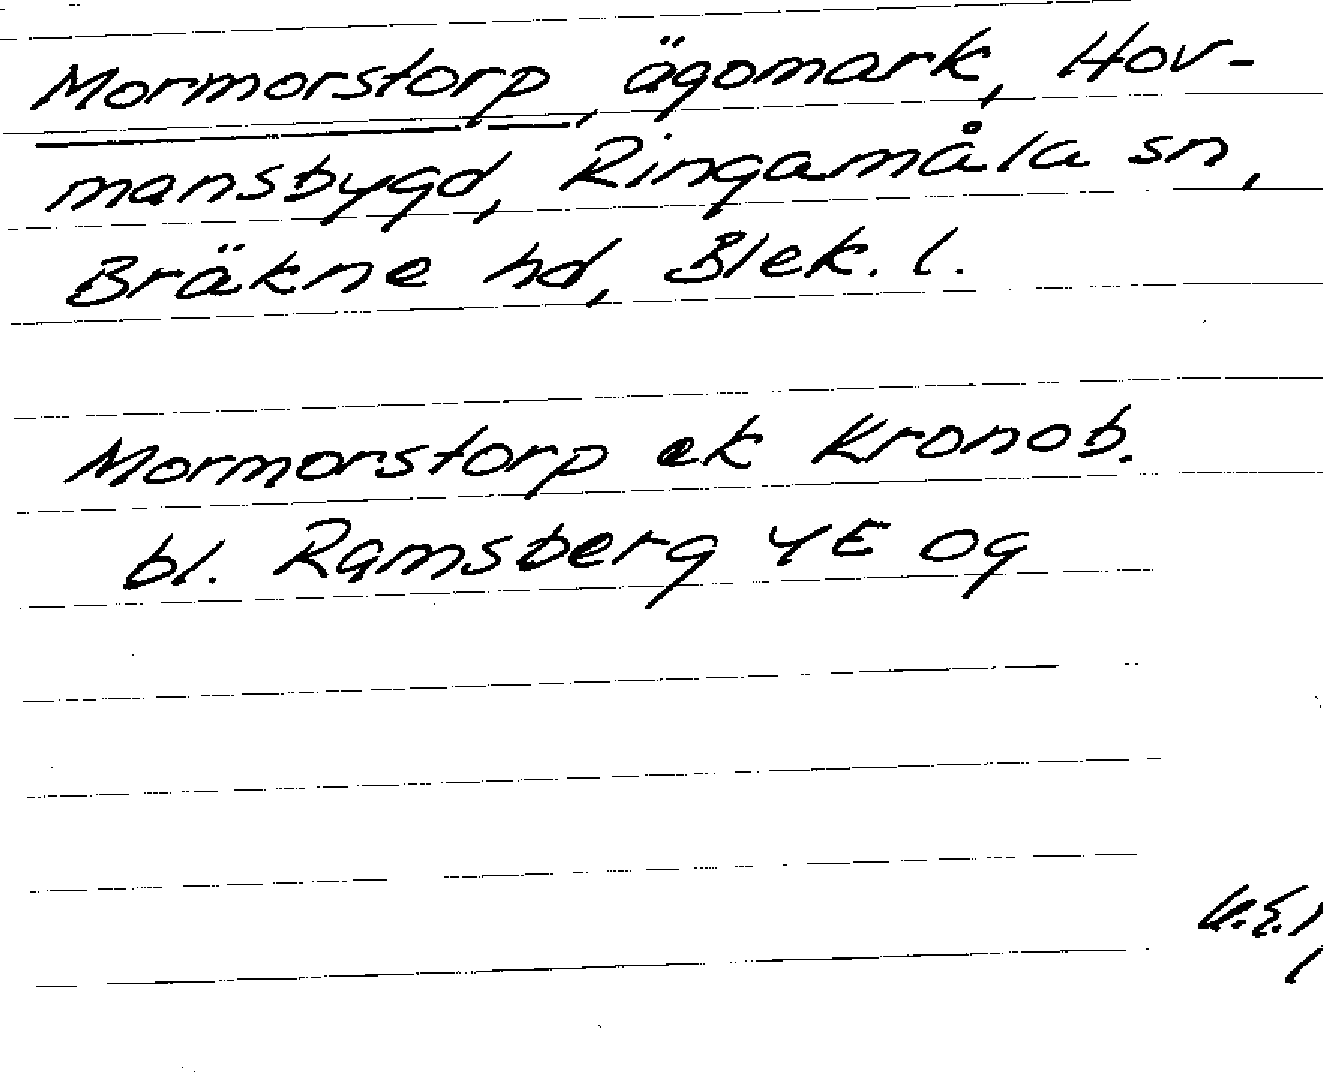 Mormorstorp, ägomark, Hov-
mansbygd, Ringamåla sn,
Bräkne hd, Blek. l.
Mormorstorp ek Kronob.
bl. Ramsberg 4E og